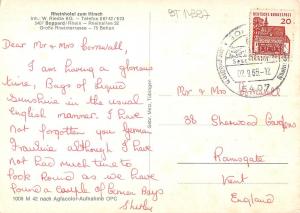 Rheinhotel zum Hirsch
Inh. W. Riedle KG. — Telefon 06742/
5407 Boppard/Rhein — Rheinallee 32
Große Rheinterrasse — 75 Betten
Dear Mr & Mrs Cornwall,
I am having a glorious
time, Bags of Liquid
Sunshine in the usual
English manner. I have
not forgotten you german
Frankie although I have
not had much time to
look Round as we have
found a couple of German Boys
Shirley
1008 M 42 nach Agfacolor-Aufnahme CPC
DEUTSCHE BUNDESPOST
20
5407
Mr & Mrs
38 Sherwood Gardens
Ramsgate
Kent
England